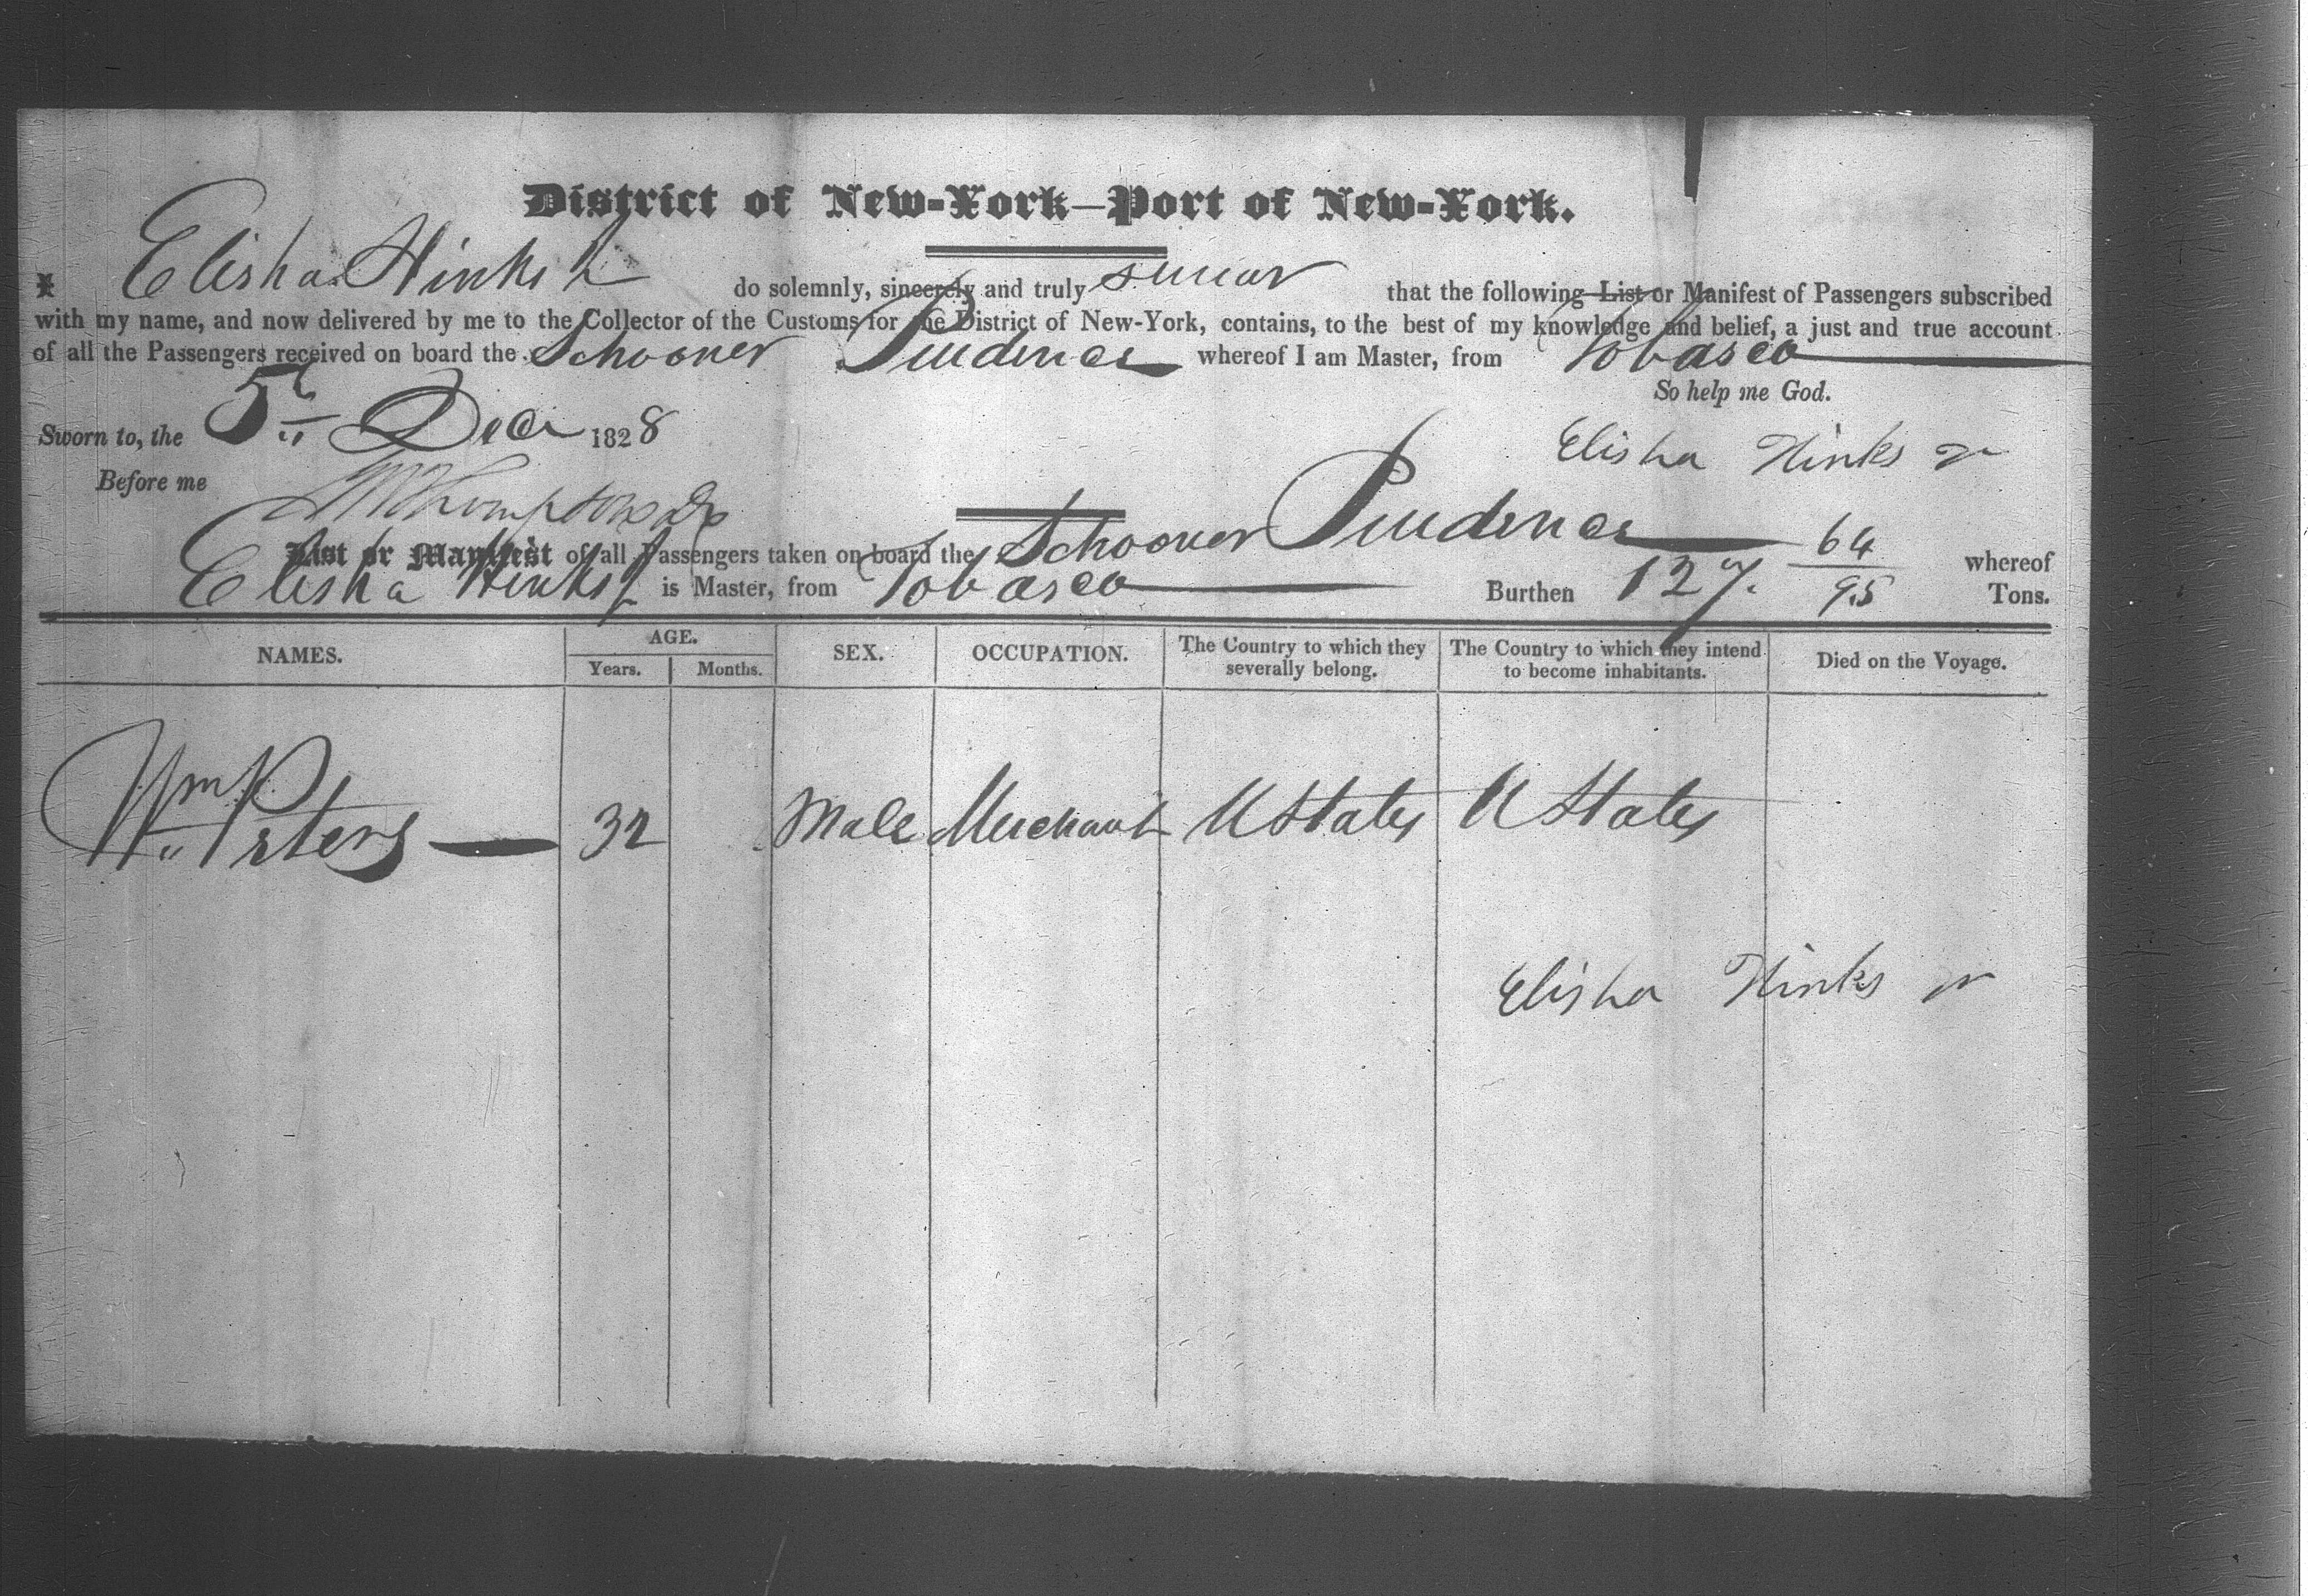 District of New-York—Port of New-York.
I Elisha Hinks Jr do solemnly, sincerely and truly swear that the following List or Manifest of Passengers subscribed
with my name, and now delivered by me to the Collector of the Customs for the District of New-York, contains, to the best of my knowledge and belief, a just and true account
of all the Passengers received on board the Schooner Prudence whereof I am Master, from Tobasco
So help me God.
Sworn to, the 5th Decr 1828
Elisha Hinks Jr
Before me
List or Manifest of all Passengers taken on board the Schooner Prudence whereof
Elisha Hinks Jr is Master, from Tobasco Burthen 127. 64/95 Tons.
NAMES. AGE. Years. Months. SEX. OCCUPATION. The Country to which they severally belong. The Country to which they intend to become inhabitants. Died on the Voyage.
Wm Peters — 32 Male Merchant U States U States
Elisha Hinks Jr